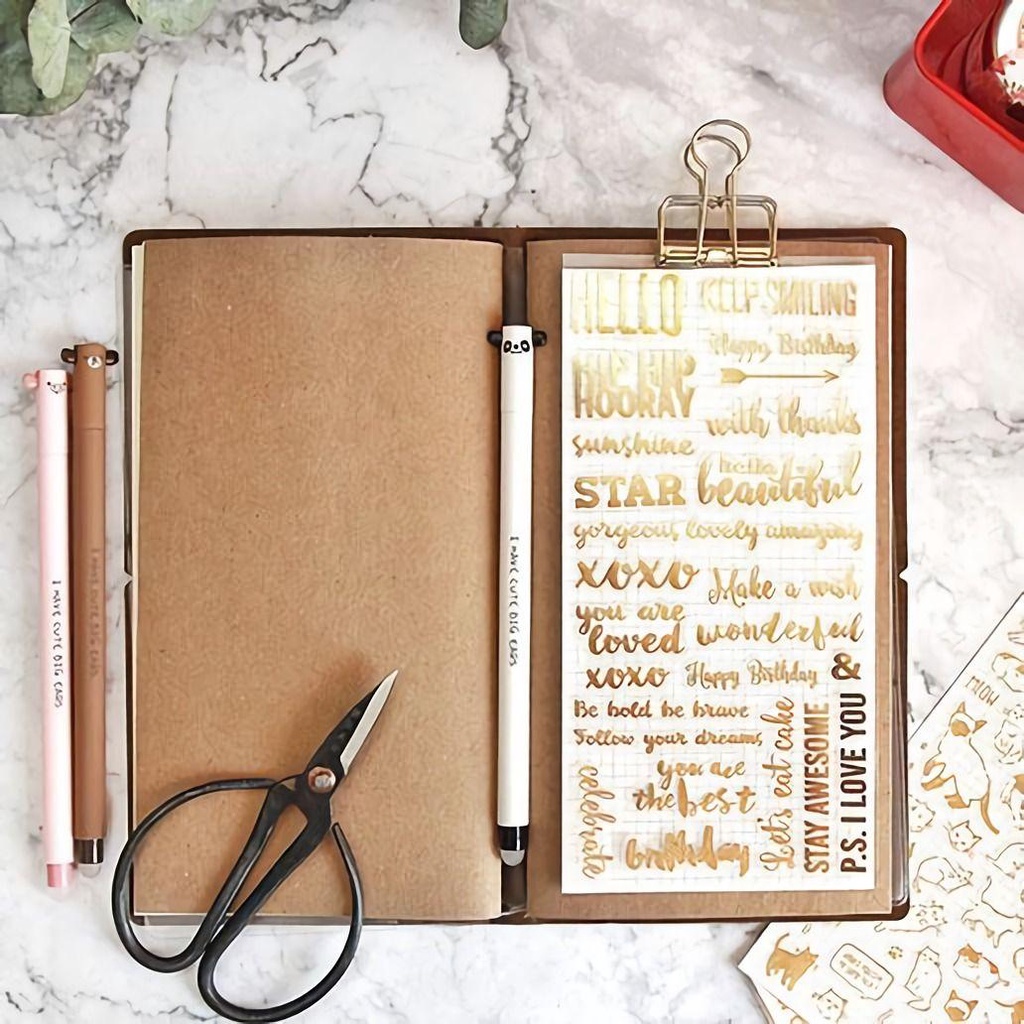 HELLO
KEEP SMILING
Happy Birthday
HIP HIP
HOORAY
with thanks
sunshine
hello
beautiful
STAR
gorgeous, lovely amazing
xoxo
Make a wish
you are
loved
wonderful
xoxo
Happy Birthday
&
Be bold be brave
Follow your dreams,
you are
the best
celebrate
birthday
Let's eat cake
STAY AWESOME
P.S. I LOVE YOU
I HAVE CUTE BIG EARS
I HAVE CUTE BIG EARS
I HAVE CUTE BIG EARS
MEOW